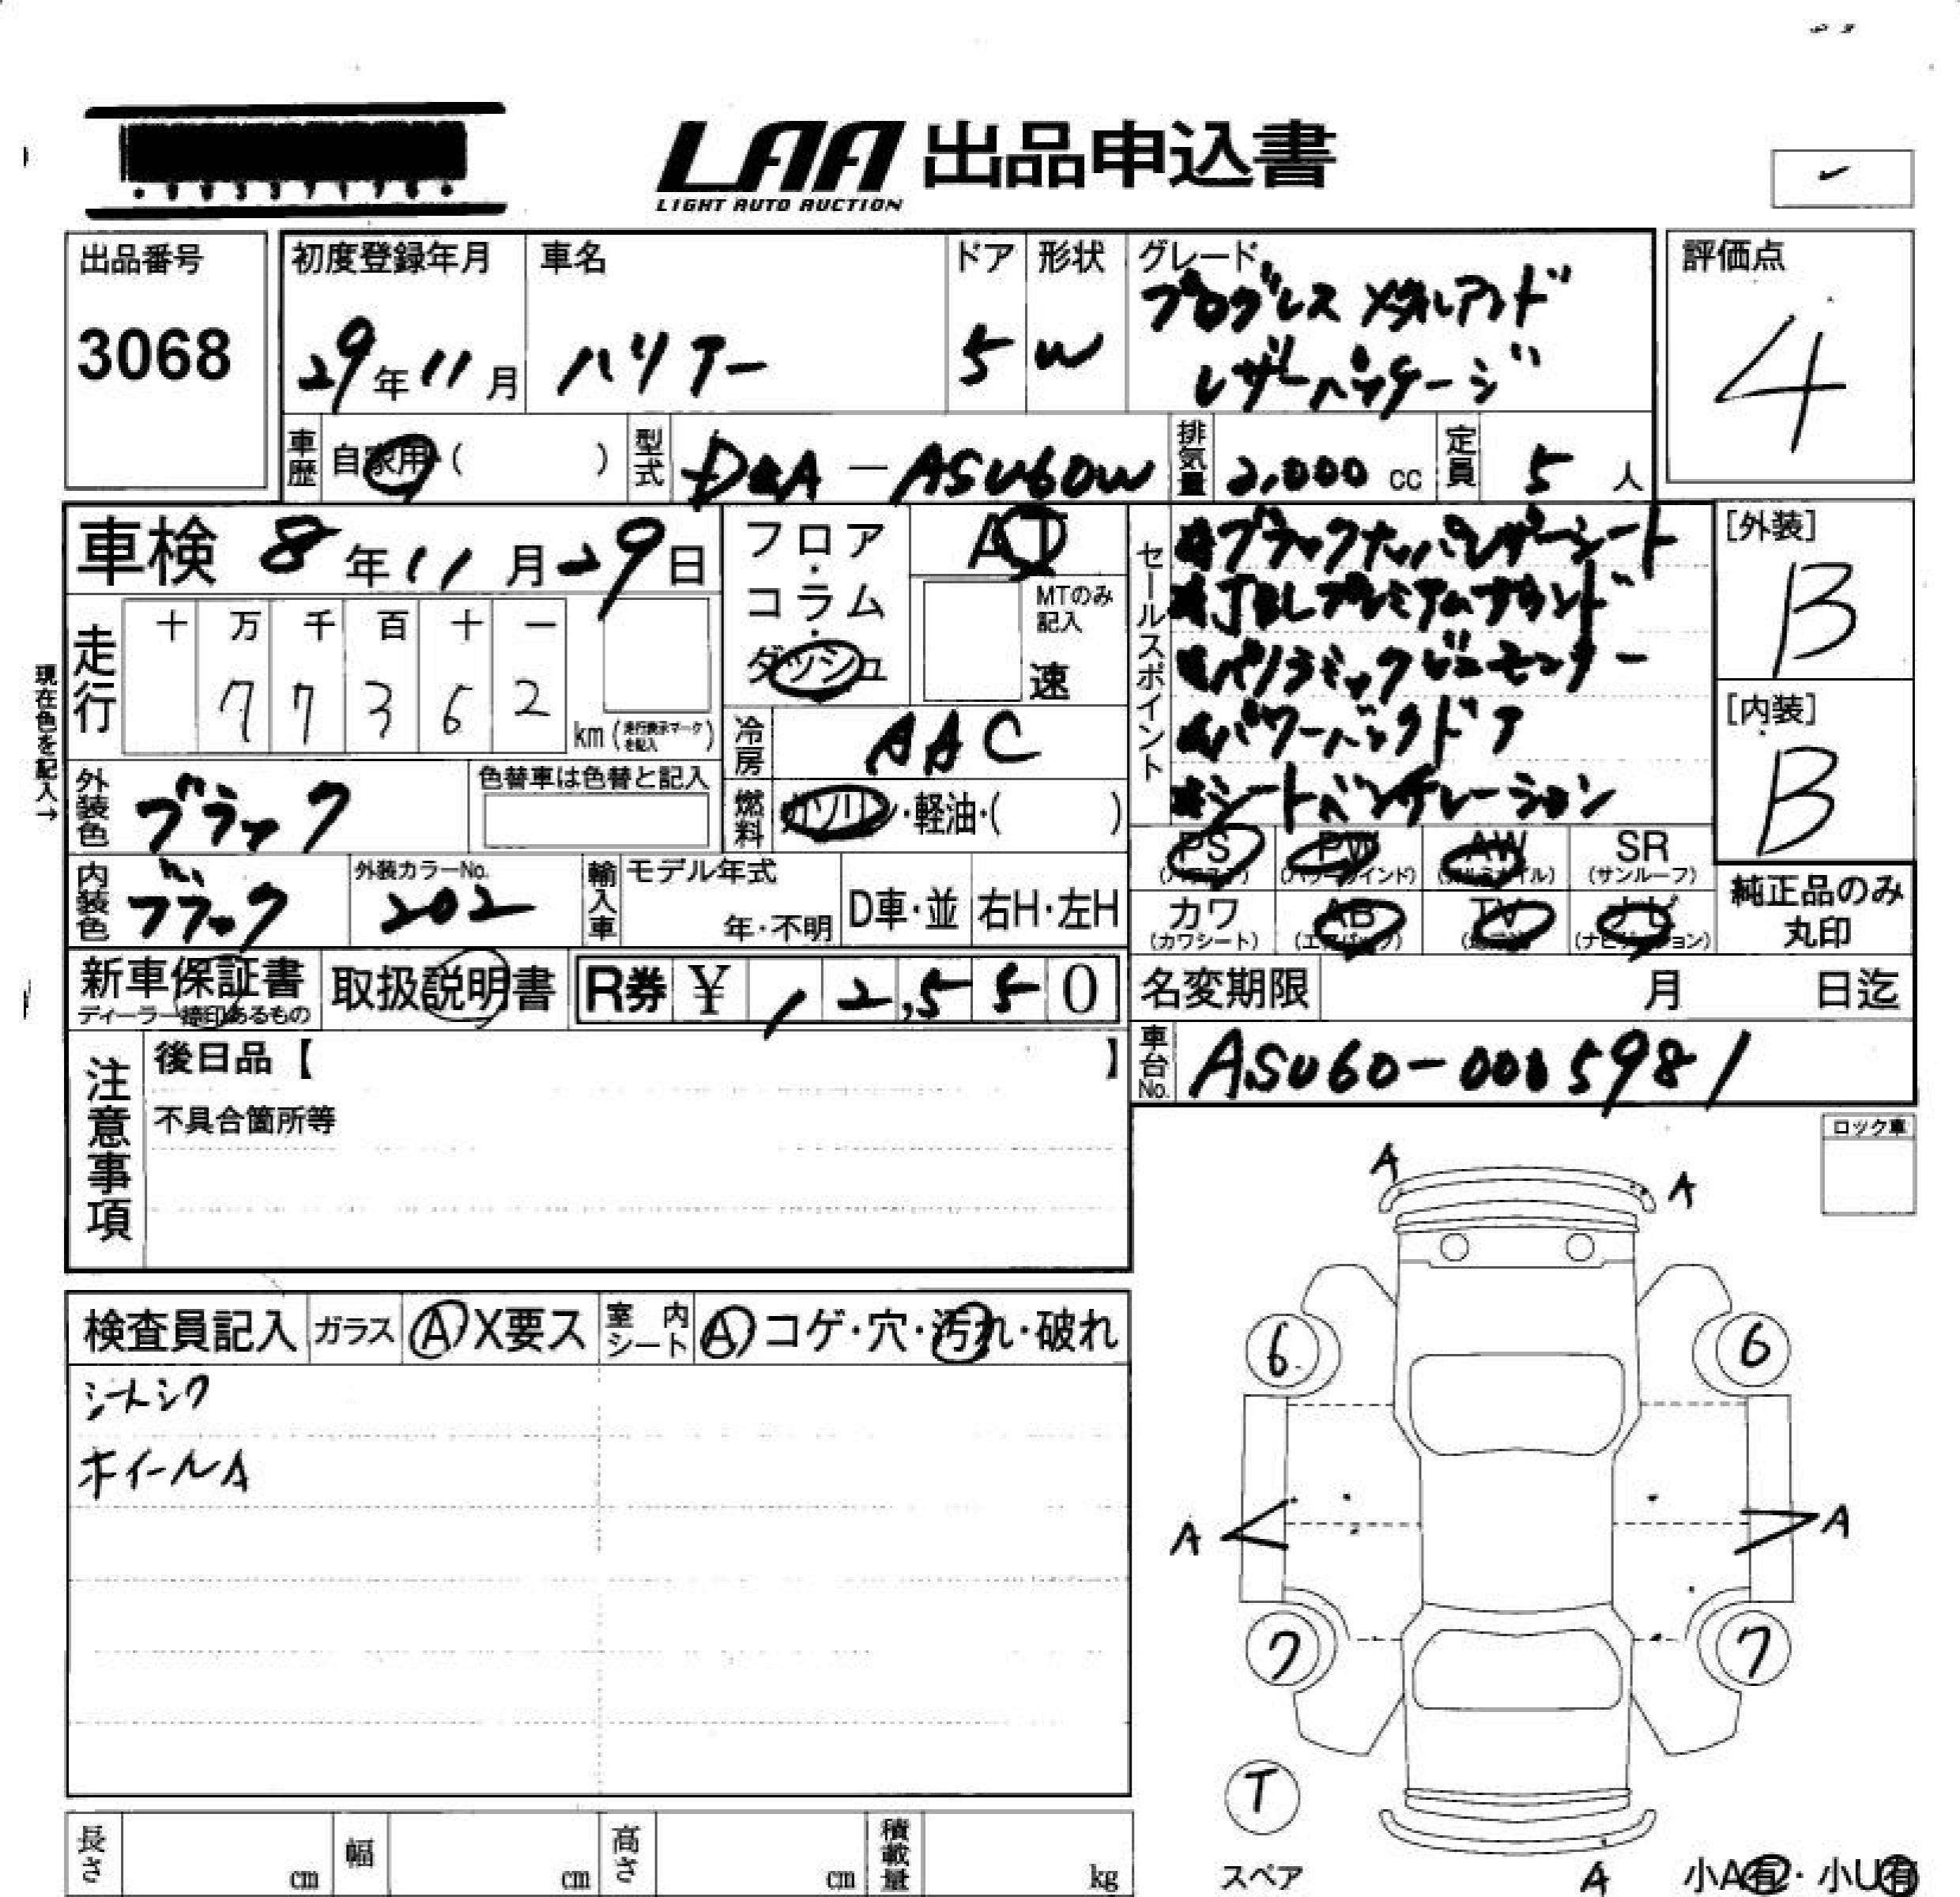 LAA 出品申込書
LIGHT AUTO AUCTION
出品番号
3068
初度登録年月
29年11月
車名
ハリアー
ドア
5
形状
W
グレード
プログレス メタルアンド
レザーパッケージ
評価点
4
車歴 自家用・( )
型式 DBA-ASU60W
排気量 2,000 cc
定員 5 人
車検 8年11月29日
フロア・コラム・ダッシュ
AT
MTのみ記入
速
走行
十 万 千 百 十 一
7 7 3 6 2
km (走行表示マークを記入)
現在色を記入→
冷房 AAC
燃料 ガソリン・軽油・( )
外装色 ブラック
色替車は色替と記入
内装色 ブラック
外装カラーNo.
202
輸入車
モデル年式
年・不明
D車・並
右H・左H
セールスポイント
#ブラックナッパレザーシート
#JBLプレミアムサウンド
#パノラミックビューモニター
#パワーバックドア
#シートベンチレーション
[外装]
B
[内装]
B
PS
PW
AW
SR
(サンルーフ)
カワ
(カワシート)
AB
(エアバッグ)
TV
ナビ
(ナビゲーション)
純正品のみ丸印
新車保証書
ディーラー捺印あるもの
取扱説明書
R券 ¥ 12,550
名変期限 月 日迄
車台No. ASU60-0005981
注意事項
後日品【 】
不具合箇所等
ロック車
検査員記入
ガラス A X要ス
室内シート A コゲ・穴・汚れ・破れ
シートシワ
ホイールA
A
A
6
6
A
A
7
7
T
スペア
A
小A有・小U有
長さ cm
幅 cm
高さ cm
積載量 kg